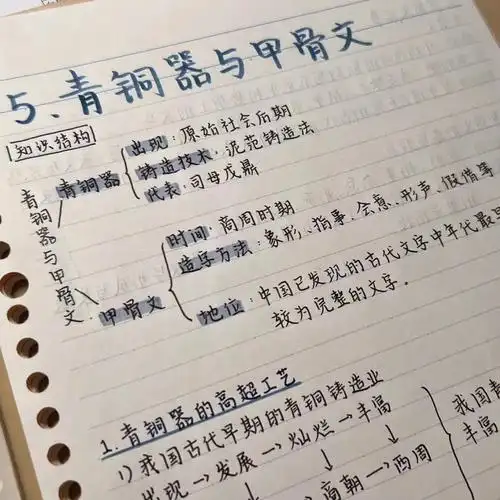 5.青铜器与甲骨文
知识结构
青铜器与甲骨文
青铜器
出现:原始社会后期
铸造技术:泥范铸造法
代表:司母戊鼎
甲骨文
时间:商周时期
造字方法:象形、指事、会意、形声、假借等
地位:中国已发现的古代文字中年代最
较为完整的文字。
1.青铜器的高超工艺
1)我国古代早期的青铜铸造业
出现→发展→灿烂→丰富
↓ ↓
商朝→西周
我国青
丰富